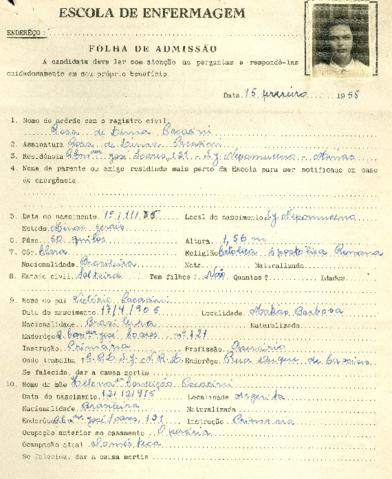 ESCOLA DE ENFERMAGEM
ENDERÊÇO:
FOLHA DE ADMISSÃO
A candidata deve ler com atenção as perguntas e respondê-las
cuidadosamente em seu próprio benefício
Data 15 fevereiro 1955
1. Nome de acôrdo com o registro civil
Rosa de Lima
2. Assinatura Rosa de Lima
3. Residência José Soares, 121 - Nepomuceno - Minas
4. Nome de parente ou amigo residindo mais perto da Escola para ser notificado em caso
de emergência
5. Data do nascimento Local do nascimento Nepomuceno
Estado Minas Gerais
6. Pêso 50 quilos Altura 1,56 m
7. Côr Religião Católica Apostólica Romana
Nacionalidade Brasileira Nata Naturalizada
8. Estado civil Solteira Tem filhos? Não Quantos? Idades
9. Nome do pai
Data do nascimento 17/4/1905 Localidade Barbosa
Nacionalidade Brasileira Naturalizado
Enderêço José Soares nº 121
Instrução Primária Profissão
Onde trabalha? Enderêço Rua Duque de Caxias
Se falecido, dar a causa mortis
10. Nome da mãe Helena Conceição
Data do nascimento 12/12/1915 Localidade Argirita
Nacionalidade Brasileira Naturalizada
Enderêço José Soares, 121 Instrução Primária
Ocupação anterior ao casamento Operária
Ocupação atual Doméstica
Se falecida, dar a causa mortis